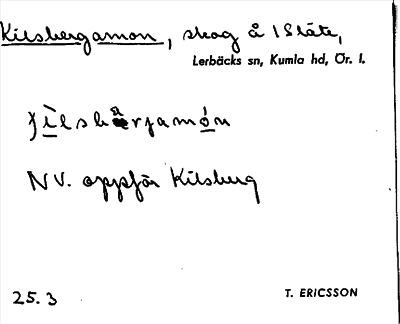 Kilsbergamon, skog å 1 Släte,
Lerbäcks sn, Kumla hd, Ör. l.
NV. oppför Kilsberg
25. 3 T. ERICSSON